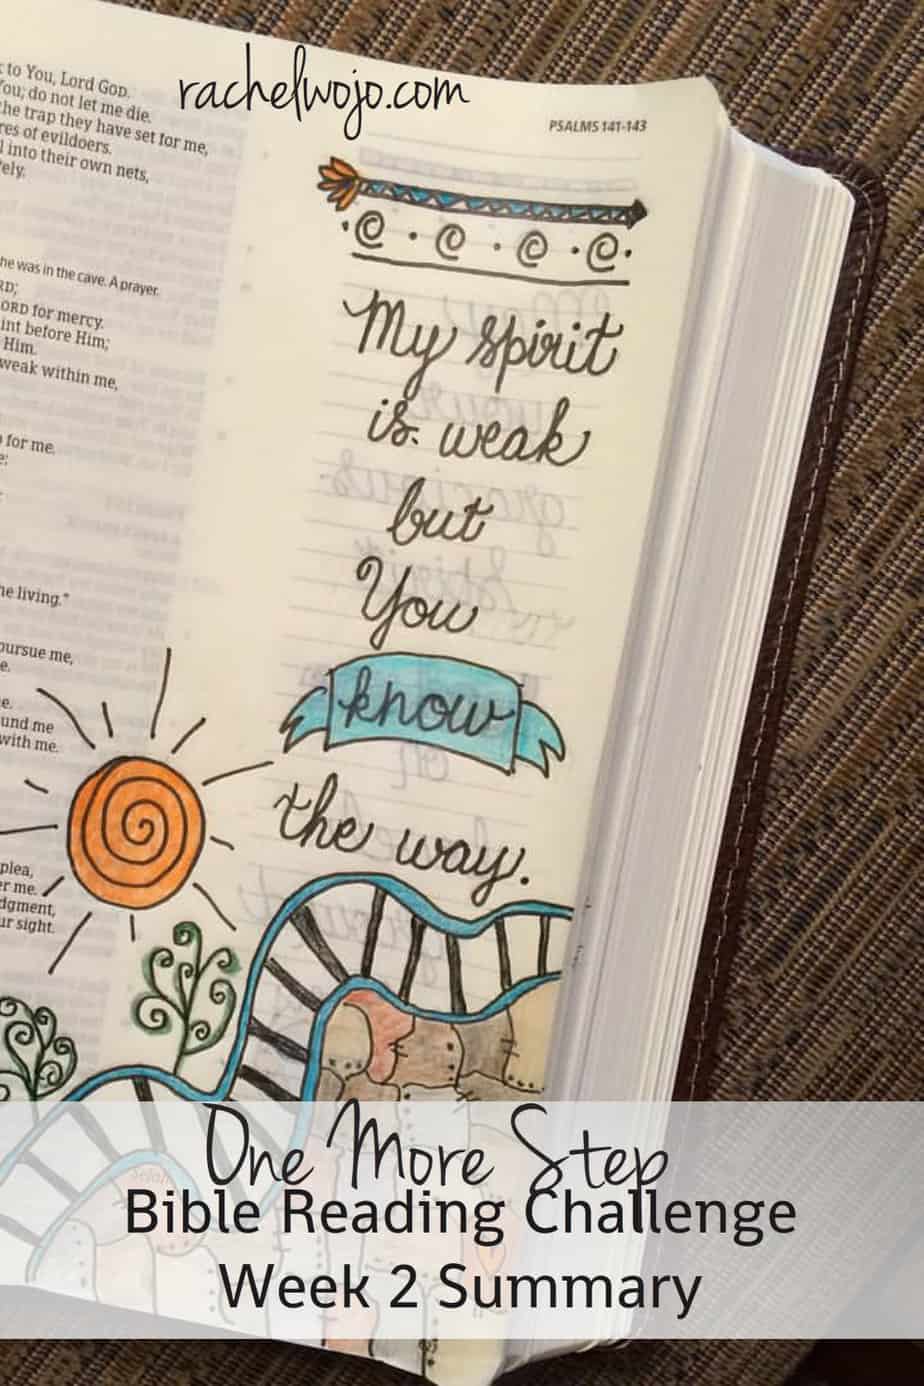 rachelwojo.com
PSALMS 141-143
to You, Lord GOD.
You; do not let me die.
the trap they have set for me,
of evildoers.
into their own nets,
he was in the cave. A prayer.
LORD for mercy.
before Him;
Him.
weak within me,
for me.
living."
pursue me,
me
with me.
plea,
me.
sight.
My spirit
is weak
but
You
know
the way.
One More Step
Bible Reading Challenge
Week 2 Summary